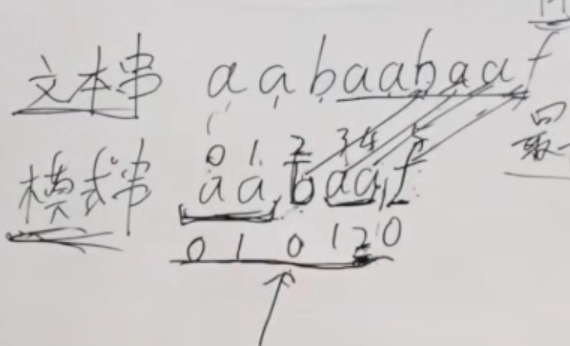 文本串 a a b a a b a a f
0 1 2 3 4 5
模式串 a a b a a f
0 1 0 1 2 0
最